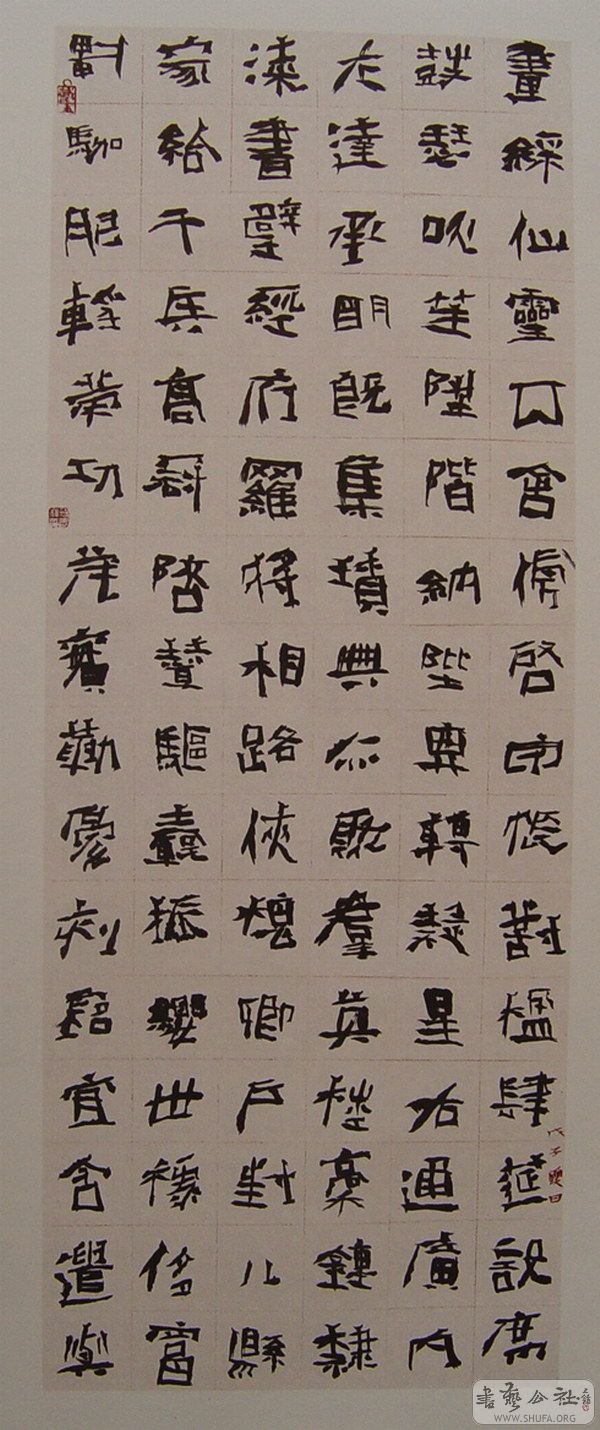 畫綵仙靈丙舍傍啓甲帳對楹肆筵設席
鼓瑟吹笙陞階納陛轉疑星右通廣內
左達承明既集墳典亦聚羣英杜稾鍾隸
漆書壁經府羅將相路俠槐卿戶封八縣
家給千兵高冠陪輦驅轂振纓世祿侈富
駕肥輕策功茂實勒刻銘
戊子夏日
書藝公社
WWW.SHUFA.ORG